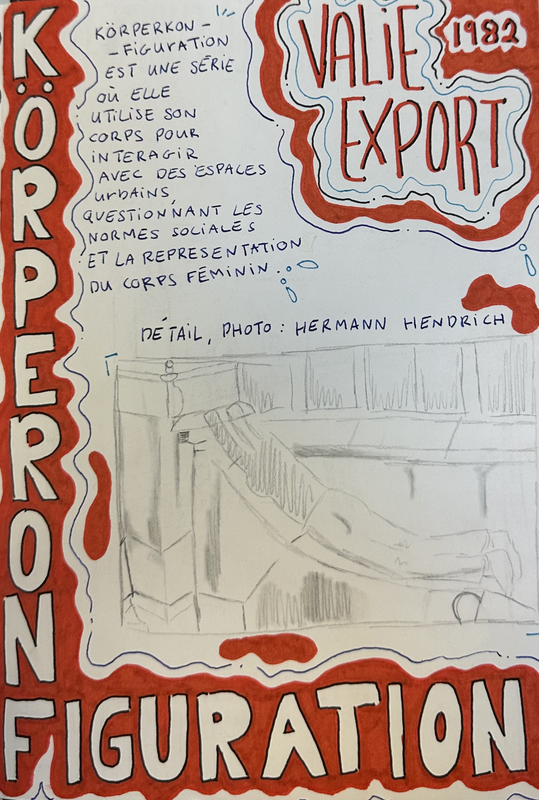 KÖRPERON
FIGURATION
KÖRPERKON-
-FIGURATION
EST UNE SÉRIE
OÙ ELLE
UTILISE SON
CORPS POUR
INTERAGIR
AVEC DES ESPACES
URBAINS,
QUESTIONNANT LES
NORMES SOCIALES
ET LA REPRESENTATION
DU CORPS FÉMININ.
VALIE
EXPORT
1982
DÉTAIL, PHOTO : HERMANN HENDRICH